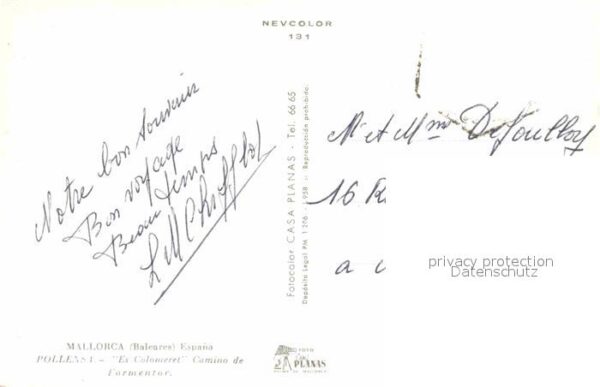 NEVCOLOR
131
Notre bon souvenir
Bon voyage
Beau temps
Fotocolor CASA PLANAS - Tel. 66 65
Depósito Legal PM 1206 - 1958 - Reproducción prohibida.
M et Mme
16 R
a
privacy protection
Datenschutz
MALLORCA (Baleares) España
POLLENSA. - "Es Colomeret" Camino de
Formentor.
FOTO
Casa
PLANAS
PALMA DE MALLORCA